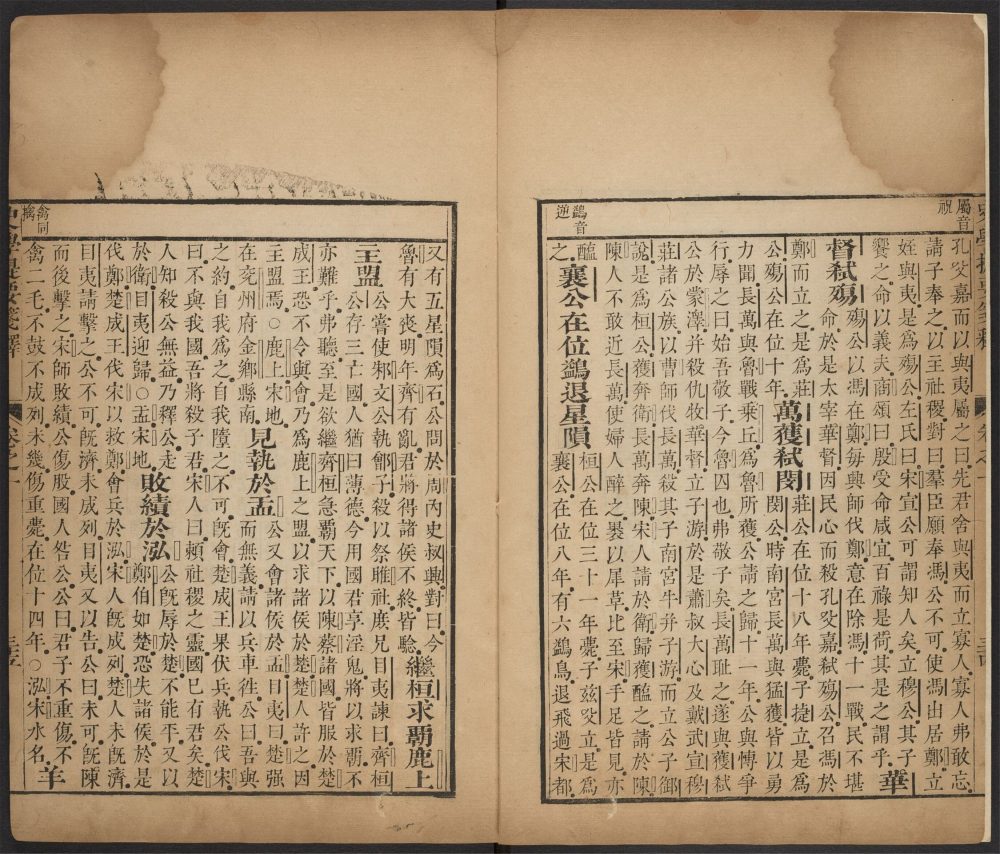 屬音
祝
孔父嘉而以與夷屬之曰先君舍與夷而立寡人寡人弗敢忘
請子奉之以主社稷對曰羣臣願奉馮公不可使馮出居鄭立
姪與夷是爲殤公左氏曰宋宣公可謂知人矣立穆公其子
饗之命以義夫商頌曰殷受命咸宜百祿是荷其是之謂乎華
督弑殤殤公以馮在鄭每興師伐鄭意在除馮十一戰民不堪
命於是太宰華督因民心而殺孔父嘉弑殤公召馮於
鄭而立之是爲莊公殤公在位十年萬獲弑閔莊公在位十八年薨子捷立是爲
閔公時南宮長萬與猛獲皆以勇
力聞長萬與魯戰乗丘爲魯所獲公請之歸十一年公與愽爭
行辱之曰始吾敬子今魯囚也弗敬子矣長萬恥之遂與獲弑
公於蒙澤幷殺仇牧華督立子游於是蕭叔大心及戴武宣穆
莊諸公族以曹師伐長萬殺其子南宮牛幷子游而立公子御
說是爲桓公獲奔衛長萬奔陳宋人請於衛歸獲醢之請於陳
陳人不敢近長萬使婦人醉之褁以犀草比至宋手足皆見亦
醢之襄公在位鷁退星隕桓公在位三十一年薨子兹父立是爲
襄公在位八年有六鷁鳥退飛過宋都
鷁音
逆
又有五星隕爲石公問於周内史叔興對曰今
魯有大喪明年齊有亂君將得諸侯不終皆驗繼桓求覇鹿上
主盟公嘗使邾文公執鄫子殺以祭睢社庶兄目夷諫曰齊桓
公存三亡國人猶曰薄德今用國君享淫鬼將以求覇不
亦難乎弗聽至是欲繼齊桓急覇天下以陳蔡諸國皆服於楚
成王恐不令與會乃爲鹿上之盟以求諸侯於楚楚人許之因
主盟焉○鹿上宋地見執於盂公又會諸侯於盂目夷曰楚强
在兖州府金鄉縣南而無義請以兵車徃公曰吾與
之約自我爲之自我隳之不可旣會楚成王果伏兵執公伐宋
曰不與我國吾將殺子君宋人曰頼社稷之靈國已有君矣楚
人知殺公無益乃釋公走敗績於泓公旣辱於楚不能平又以
於衛目夷迎歸○盂宋地鄭伯如楚恐失諸侯於是
伐鄭楚成王伐宋以救鄭會兵於泓宋人旣成列楚人未旣濟
目夷請擊之公不可旣濟未成列目夷又以告公曰未可旣陳
而後擊之宋師敗績公傷股國人咎公公曰君子不重傷不
禽二毛不鼓不成列未幾傷重薨在位十四年○泓宋水名羊
禽同
擒